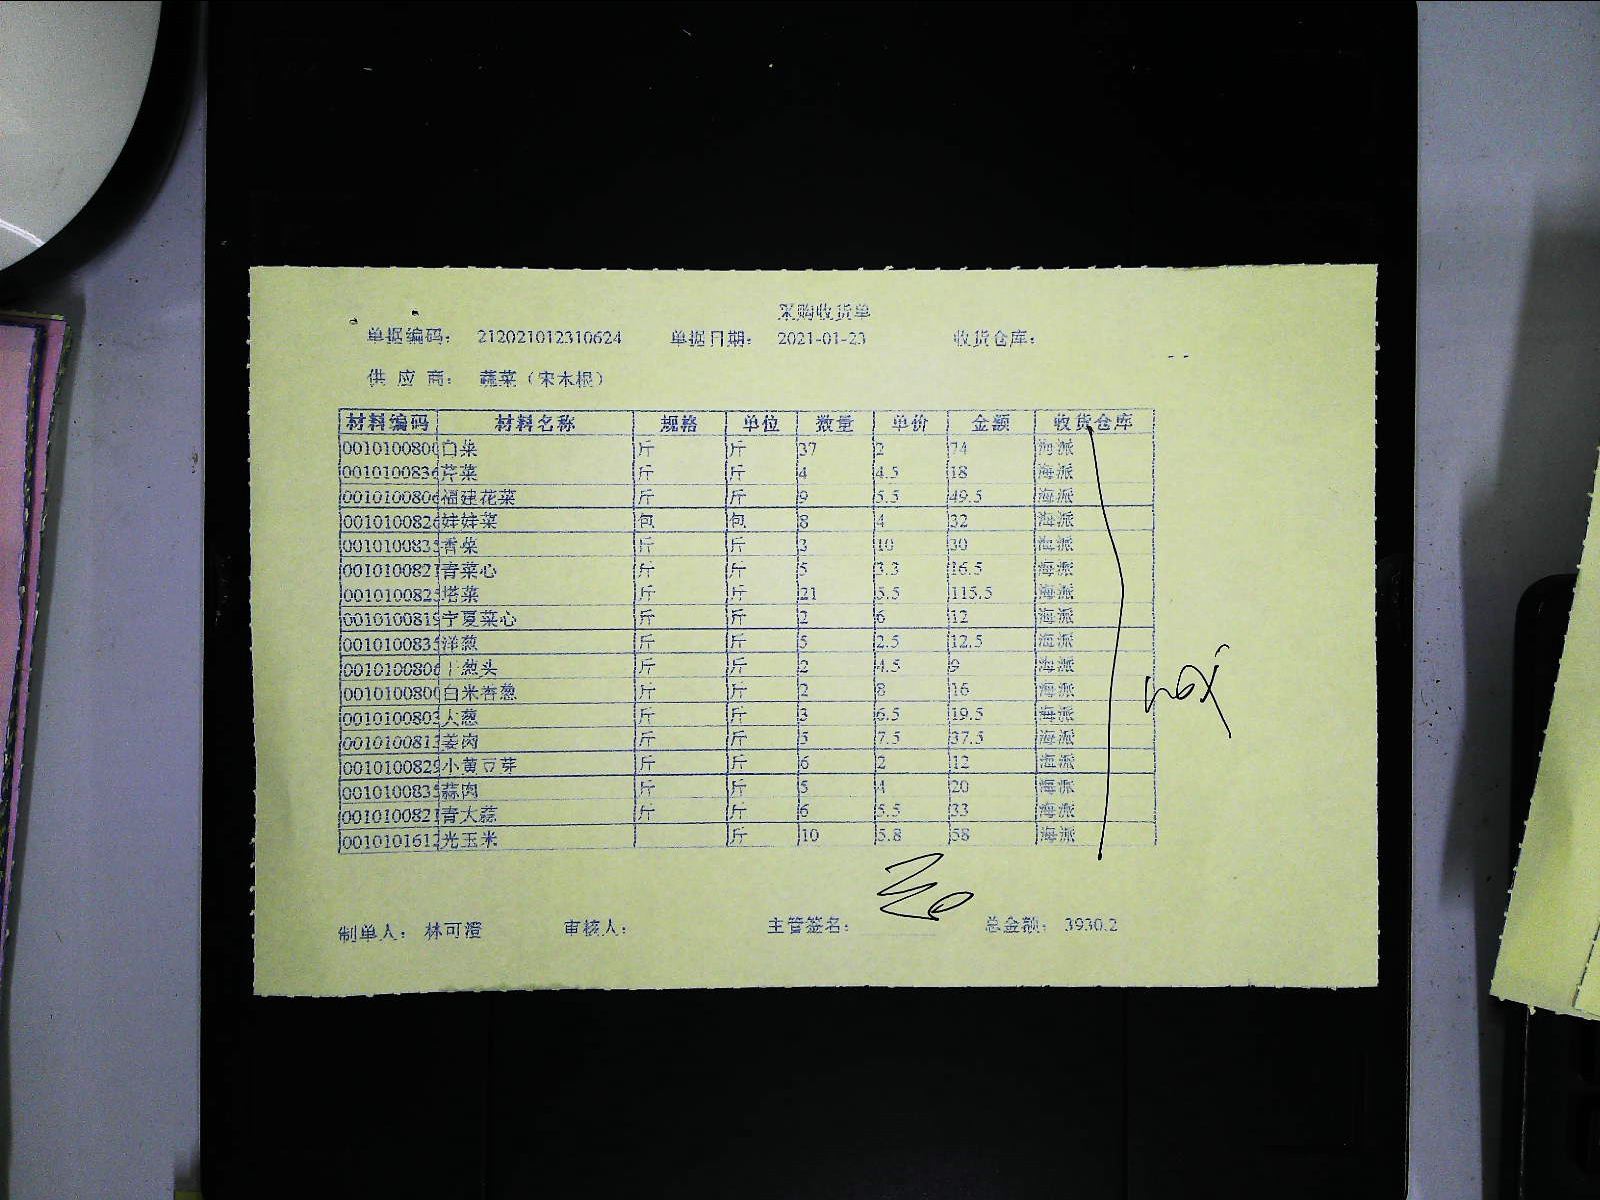 采购收货单
单据编码： 212021012310624 单据日期： 2021-01-23 收货仓库：
供 应 商： 蔬菜（宋木根）
材料编码 材料名称 规格 单位 数量 单价 金额 收货仓库
0010100800 白菜 斤 斤 37 2 74 海派
0010100836 芹菜 斤 斤 4 4.5 18 海派
0010100806 福建花菜 斤 斤 9 5.5 49.5 海派
0010100826 娃娃菜 包 包 8 4 32 海派
001010083 香菜 斤 斤 3 10 30 海派
0010100821 青菜心 斤 斤 5 3.3 16.5 海派
001010082 塔菜 斤 斤 21 5.5 115.5 海派
001010081 宁夏菜心 斤 斤 2 6 12 海派
001010083 洋葱 斤 斤 5 2.5 12.5 海派
0010100806 干葱头 斤 斤 2 4.5 9 海派
0010100800 白米香葱 斤 斤 2 8 16 海派
001010080 大葱 斤 斤 3 6.5 19.5 海派
001010081 姜肉 斤 斤 5 7.5 37.5 海派
0010100829 小黄豆芽 斤 斤 6 2 12 海派
001010083 蒜肉 斤 斤 5 4 20 海派
0010100821 青大蒜 斤 斤 6 5.5 33 海派
001010161 光玉米 斤 10 5.8 58 海派
制单人： 林可澄 审核人： 主管签名： 总金额： 3930.2